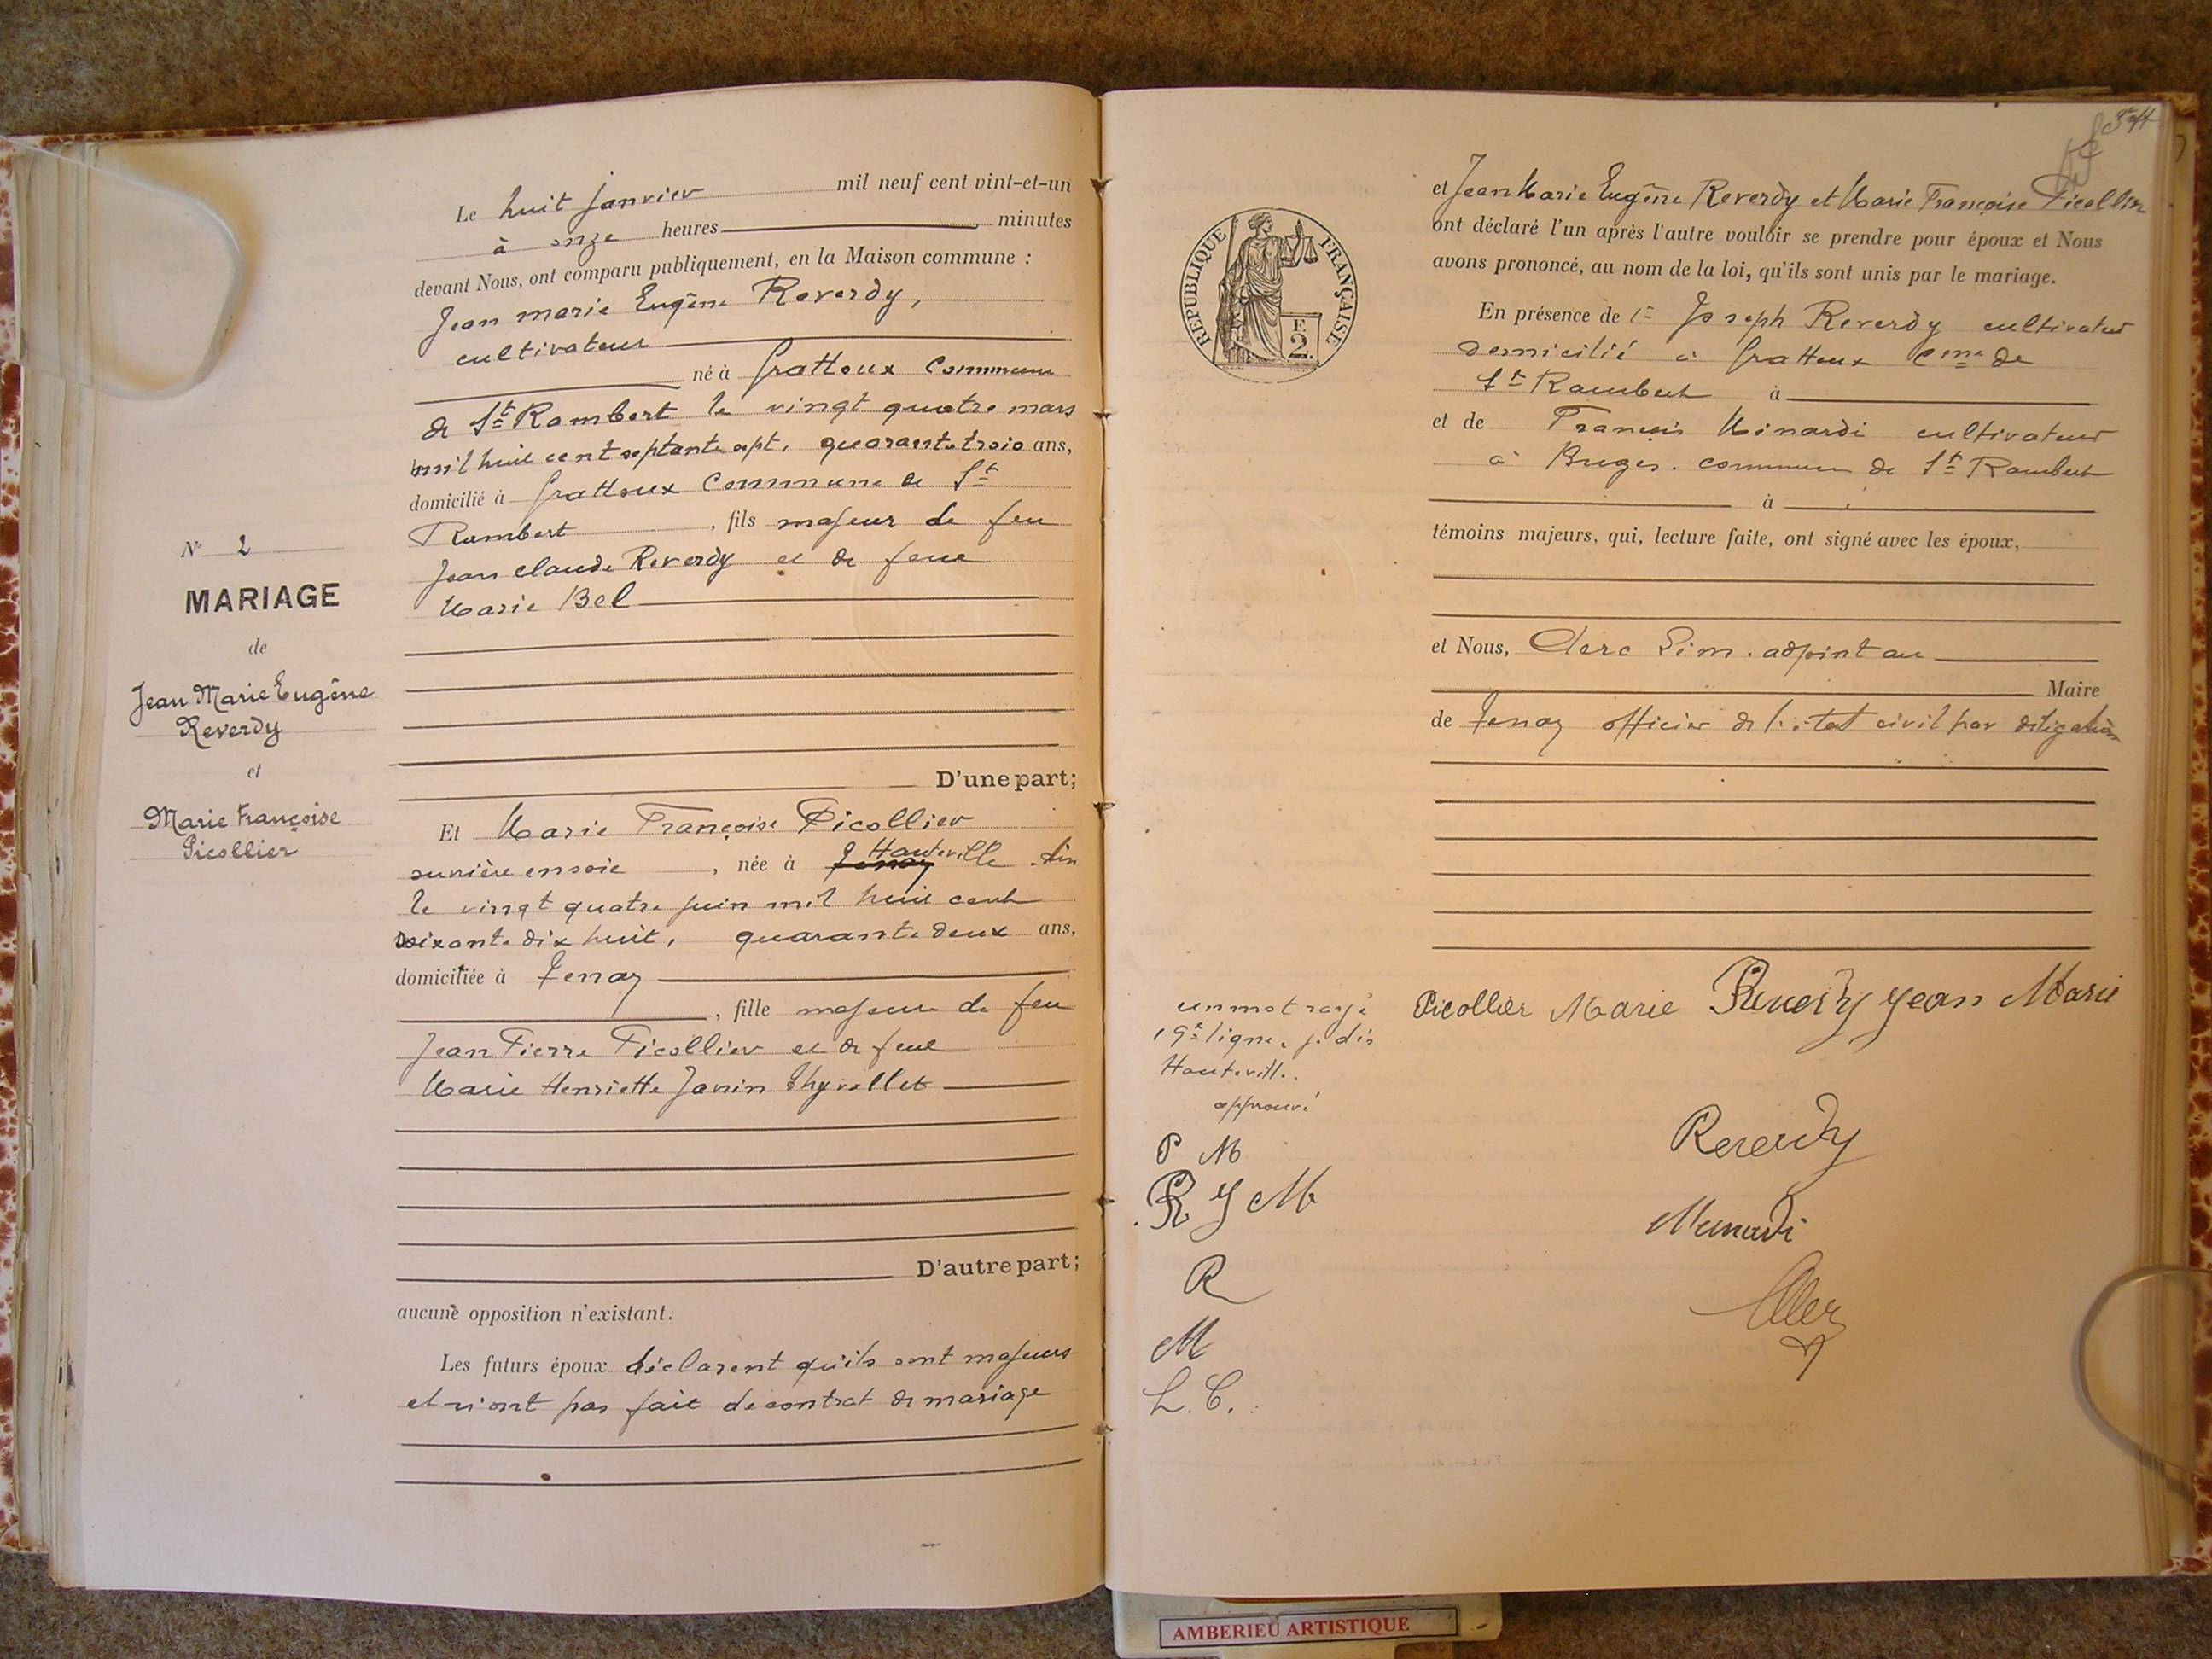 N° 2
MARIAGE
de
Jean Marie Eugène
Reverdy
et
Marie Françoise
Picollier
Le huit janvier mil neuf cent vint-et-un
à onze heures minutes
devant Nous, ont comparu publiquement, en la Maison commune :
Jean marie Eugène Reverdy,
cultivateur
né à Grattoux Commune
de St Rambert le vingt quatre mars
mil huit cent septante sept, quarante trois ans,
domicilié à Grattoux Commune de St
Rambert , fils majeur de feu
Jean Claude Reverdy et de feue
Marie Bel
D'une part;
Et Marie Françoise Picollier
ouvrière en soie , née à Tenay Hauteville Ain
le vingt quatre juin mil huit cent
soixante dix huit, quarante deux ans,
domiciliée à Tenay
, fille majeure de feu
Jean Pierre Picollier et de feue
Marie Henriette Janin Thyvollet
D'autre part;
aucune opposition n'existant.
Les futurs époux déclarent qu'ils sont majeurs
et n'ont pas fait de contrat de mariage
RÉPUBLIQUE FRANÇAISE
F.
2.
et Jean Marie Eugène Reverdy et Marie Françoise Picollier
ont déclaré l'un après l'autre vouloir se prendre pour époux et Nous
avons prononcé, au nom de la loi, qu'ils sont unis par le mariage.
En présence de Joseph Reverdy cultivateur
domicilié à Grattoux Cme de
St Rambert à
et de François Minardi cultivateur
à Buges. commune de St Rambert
à
témoins majeurs, qui, lecture faite, ont signé avec les époux,
et Nous, Clerc Lim. adjoint au
Maire
de Tenay officier de l'état civil par délégation
un mot rayé
19e ligne, je dis
Hauteville.
approuvé
P M
R J M
R
M
L. C.
Picollier Marie Reverdy Jean Marie
Reverdy
Minardi
Clerc
AMBERIEU ARTISTIQUE